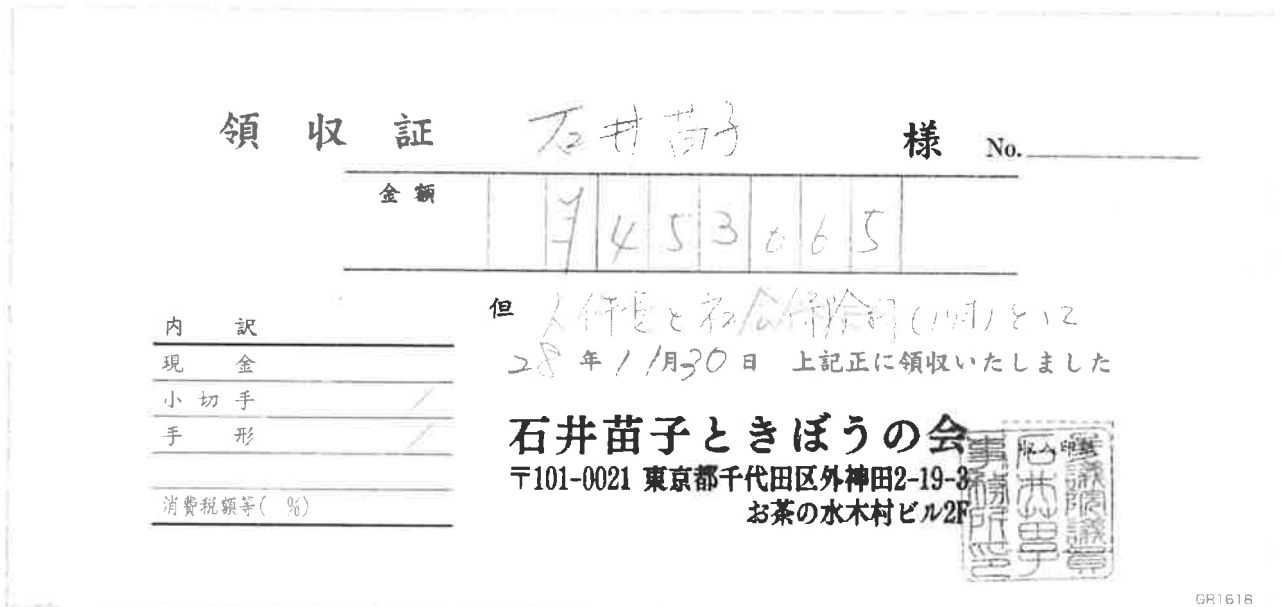 領収証 石井苗子 様 No.
金額 ¥453065
但 人件費と社会保険料(11月)として
28年11月30日 上記正に領収いたしました
内訳
現金
小切手
手形
消費税額等( %)
石井苗子ときぼうの会
〒101-0021 東京都千代田区外神田2-19-3
お茶の水木村ビル2F
収入印紙
参議院議員
石井苗子
事務所印
GR1616